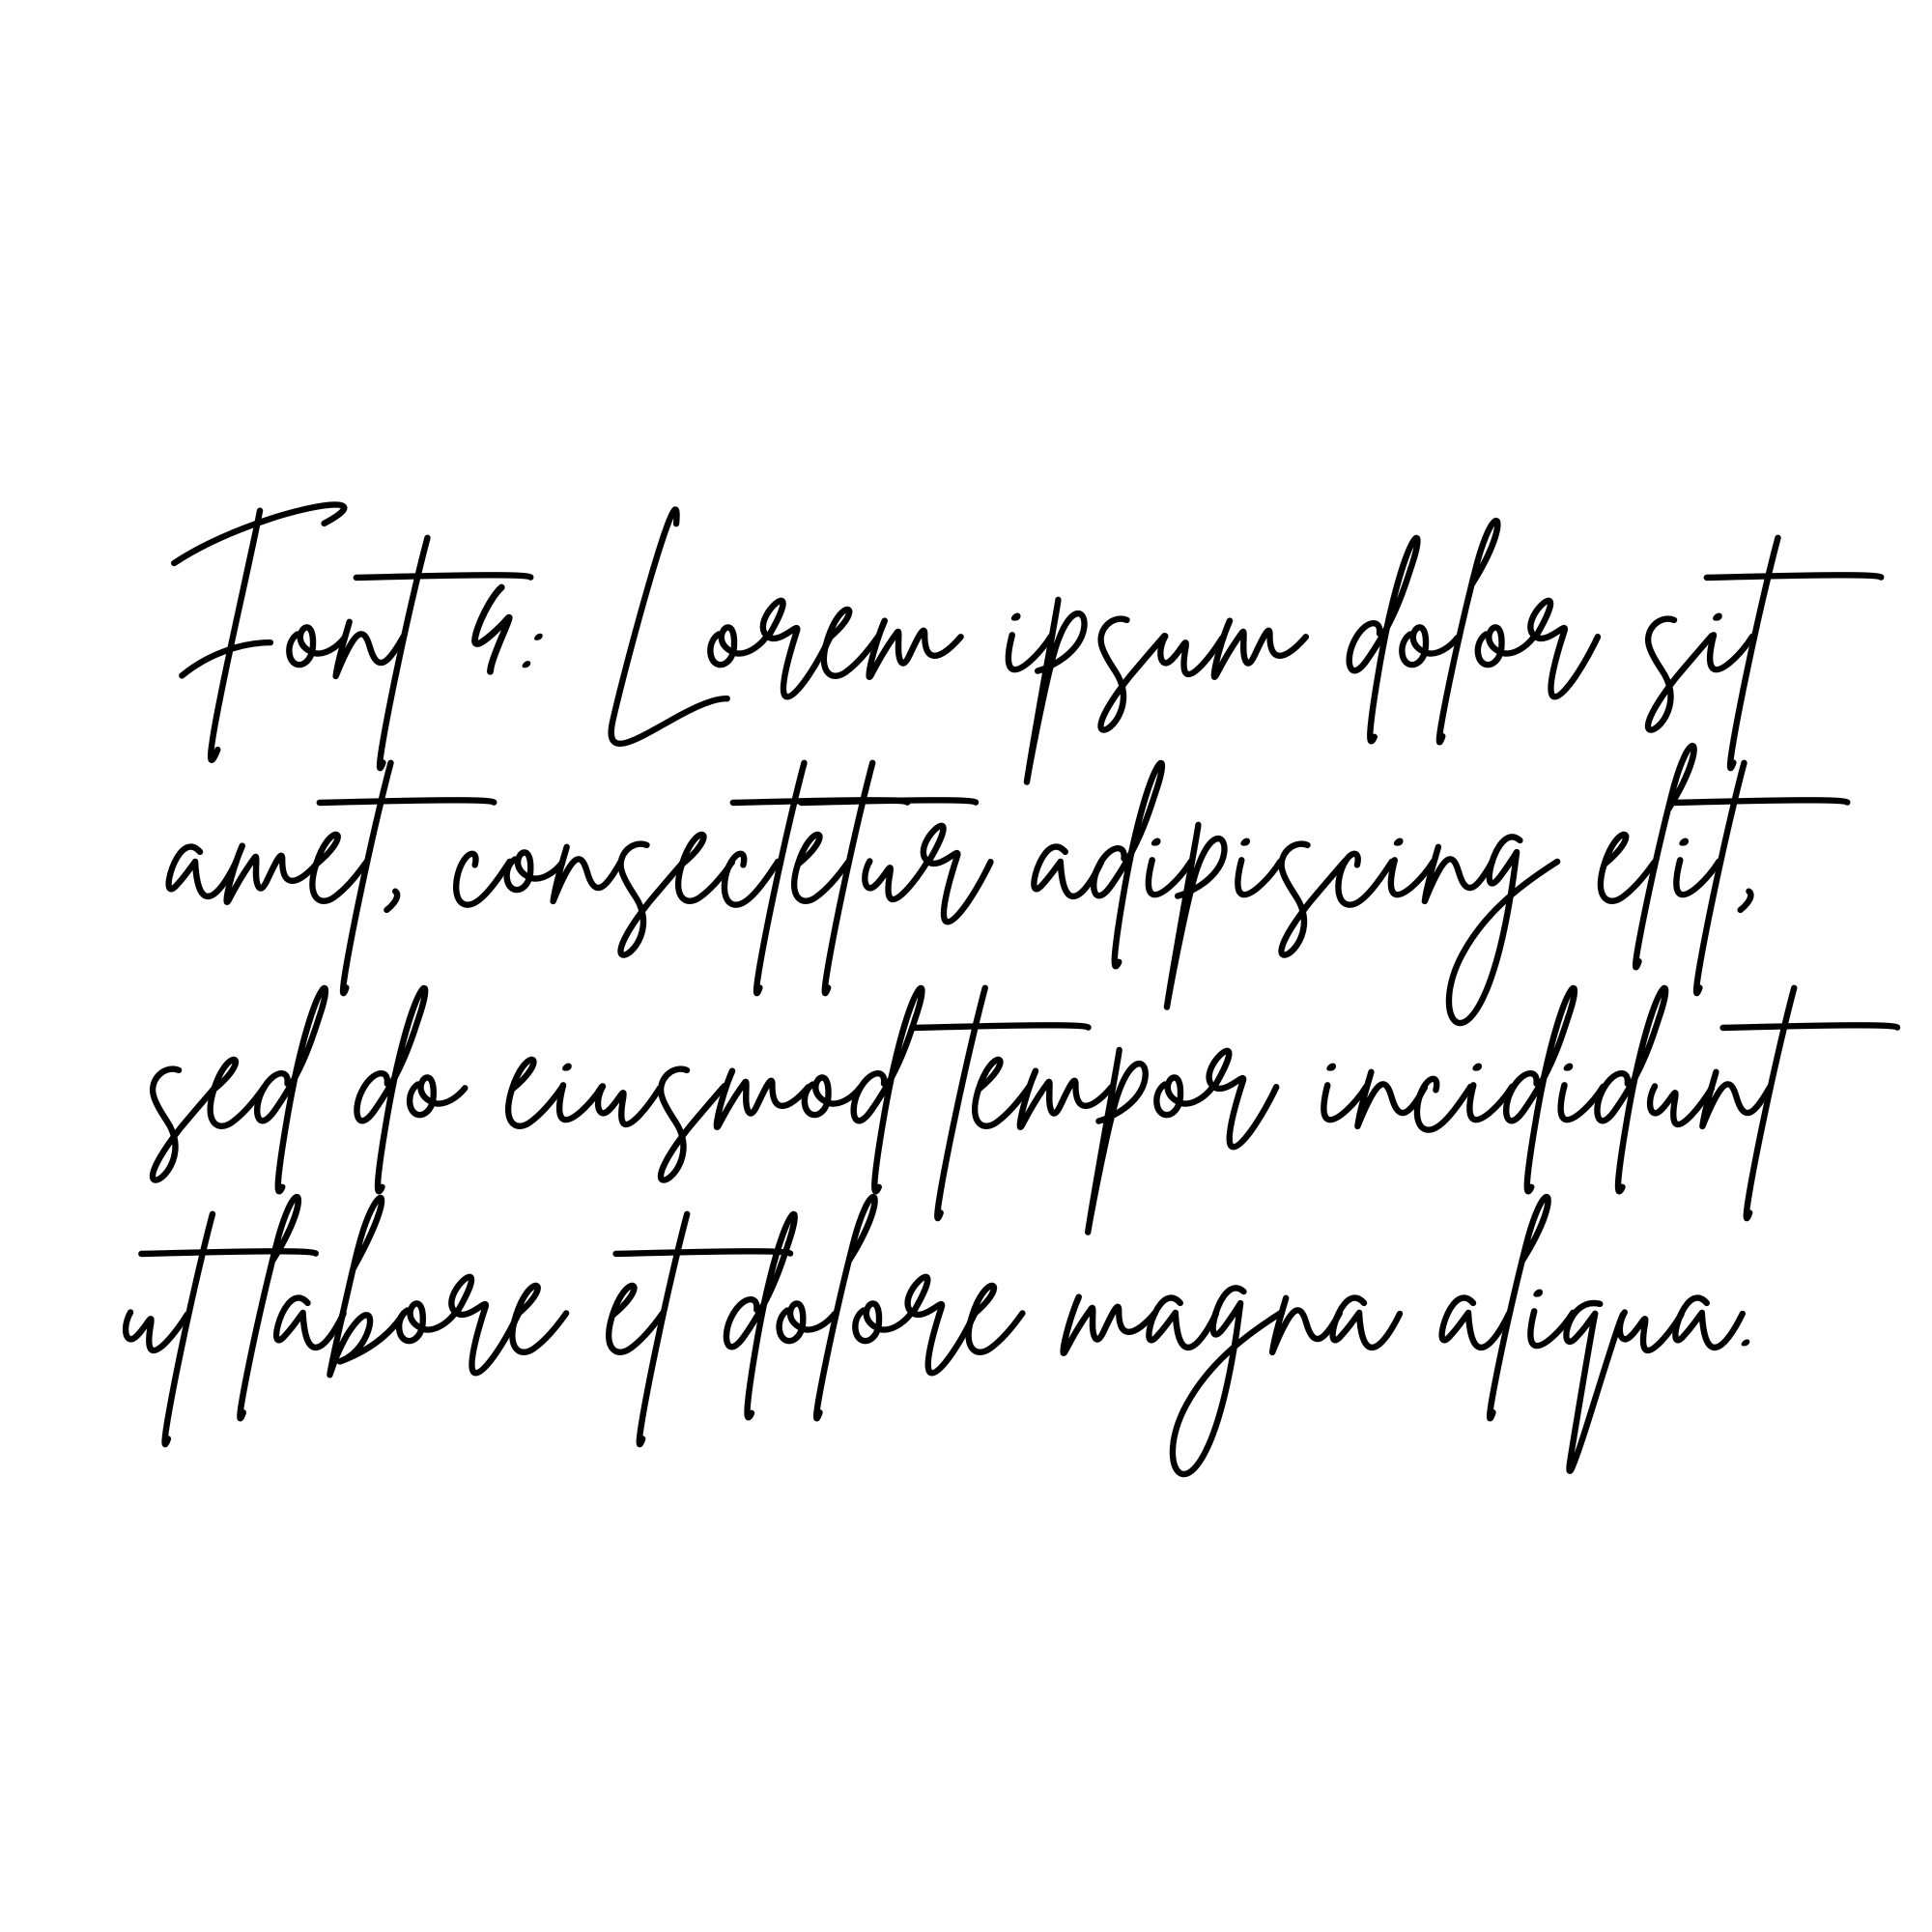 Font 4: Lorem ipsum dolor sit
amet, consectetur adipiscing elit,
sed do eiusmod tempor incididunt
ut labore et dolore magna aliqua.